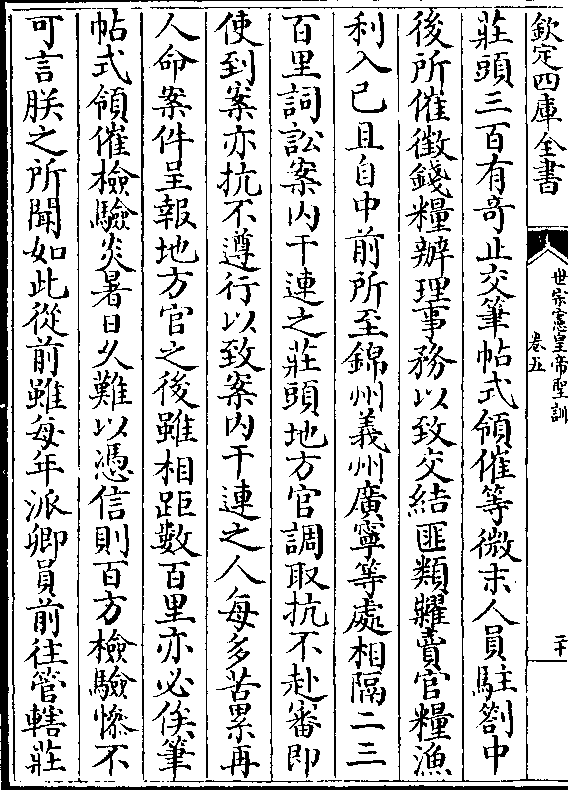 欽定四庫全書
世宗憲皇帝聖訓
卷五
二十
莊頭三百有奇止交筆帖式領催等微末人員駐劄中
後所催徵錢糧辦理事務以致交結匪類糶賣官糧漁
利入己且自中前所至錦州義州廣寧等處相隔二三
百里詞訟案内干連之莊頭地方官調取抗不赴審即
使到案亦抗不遵行以致案内干連之人每多苦累再
人命案件呈報地方官之後雖相距數百里亦必俟筆
帖式領催檢驗炎暑日乆難以憑信則百方檢驗慘不
可言朕之所聞如此從前雖每年派卿員前往管轄莊